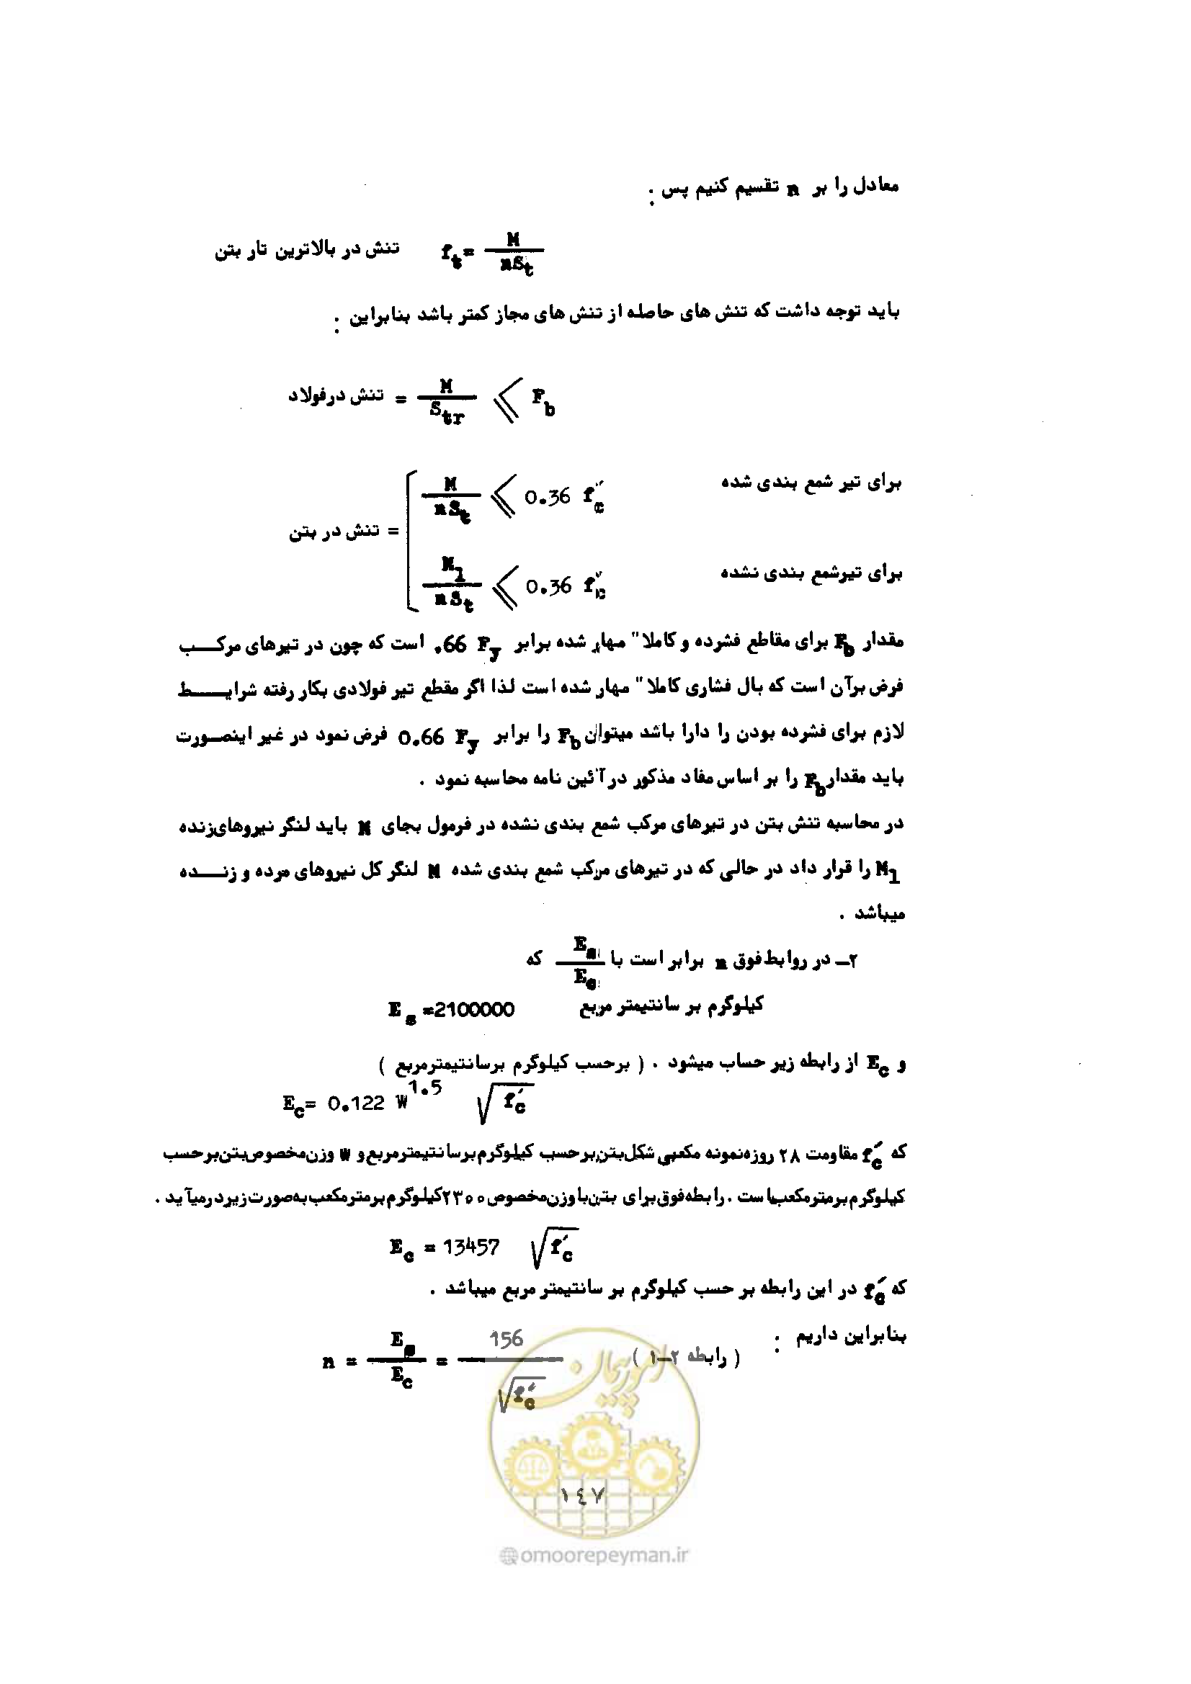 معادل را بر n تقسیم کنیم پس :
تنش در بالاترین تار بتن f_t = M / nS_t
باید توجه داشت که تنش های حاصله از تنش های مجاز کمتر باشد بنابراین :
تنش درفولاد = M / S_tr ⩽ F_b
برای تیر شمع بندی شده M / nS_t ⩽ 0.36 f′_c
تنش در بتن =
برای تیرشمع بندی نشده M_1 / nS_t ⩽ 0.36 f′_c
مقدار F_b برای مقاطع فشرده و کاملا" مهار شده برابر .66 F_y است که چون در تیرهای مرکب
فرض برآن است که بال فشاری کاملا" مهار شده است لذا اگر مقطع تیر فولادی بکار رفته شرایط
لازم برای فشرده بودن را دارا باشد میتوان F_b را برابر 0.66 F_y فرض نمود در غیر اینصورت
باید مقدار F_b را بر اساس مفاد مذکور در آئین نامه محاسبه نمود .
در محاسبه تنش بتن در تیرهای مرکب شمع بندی نشده در فرمول بجای M باید لنگر نیروهای زنده
M_1 را قرار داد در حالی که در تیرهای مرکب شمع بندی شده M لنگر کل نیروهای مرده و زنده
میباشد .
۲ــ در روابط فوق n برابر است با E_s / E_c که
E_s =2100000 کیلوگرم بر سانتیمتر مربع
و E_c از رابطه زیر حساب میشود . ( برحسب کیلوگرم برسانتیمترمربع )
E_c = 0.122 W^1.5 √f′_c
که f′_c مقاومت ۲۸ روزه نمونه مکعبی شکل بتن برحسب کیلوگرم برسانتیمترمربع و W وزن مخصوص بتن برحسب
کیلوگرم برمترمکعب است . رابطه فوق برای بتن با وزن مخصوص ۲۳۰۰ کیلوگرم برمترمکعب به صورت زیر درمیآید .
E_c = 13457 √f′_c
که f′_c در این رابطه بر حسب کیلوگرم بر سانتیمتر مربع میباشد .
بنابراین داریم :
( رابطه ۲ــ۱ ) n = E_s / E_c = 156 / √f′_c
امور پیمان
۱٤۷
@omoorepeyman.ir